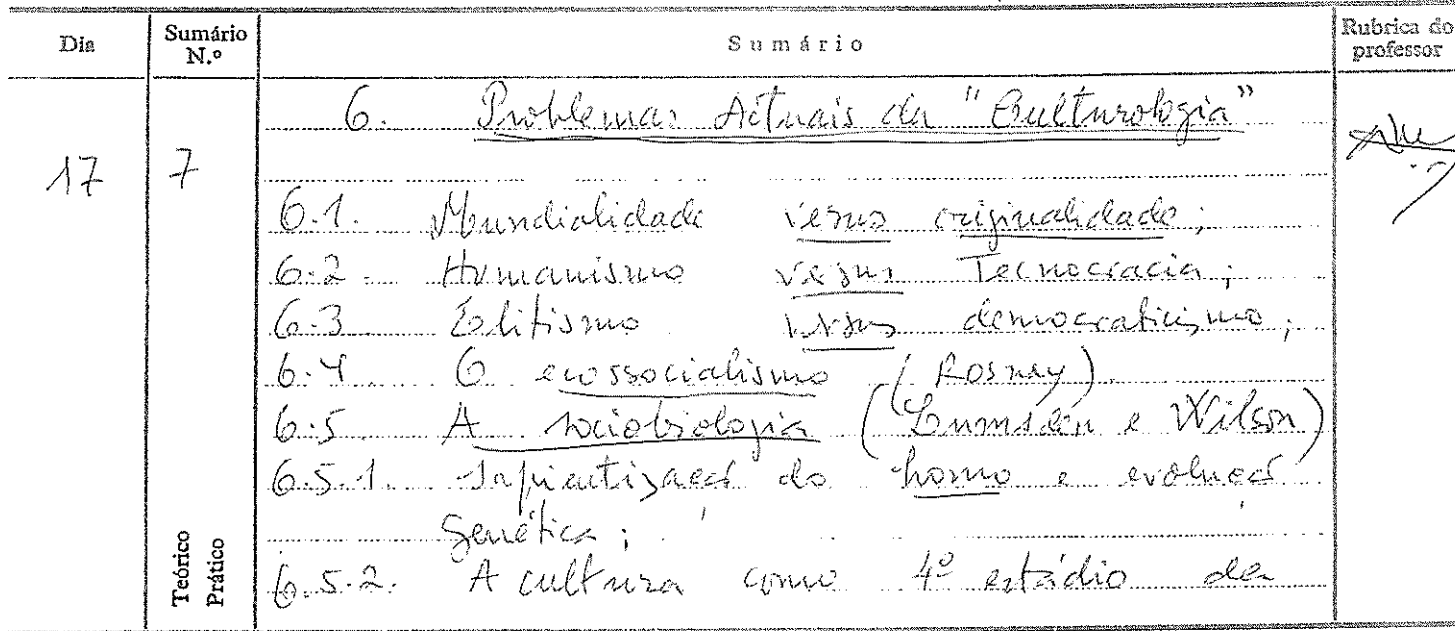 Dia Sumário N.º Sumário Rubrica do professor
6. Problemas Actuais da "Culturologia"
17 7
6.1. Mundialidade versus originalidade;
6.2. Humanismo versus Tecnocracia;
6.3 Elitismo versus democraticismo;
6.4 O ecossocialismo (Rosnay).
6.5 A sociobiologia (Lumsden e Wilson)
6.5.1. Sapientização do homo e evolução
genética;
6.5.2. A cultura como 4º estádio da
Teórico
Prático